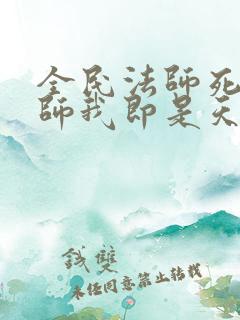 全民法師死
師我即是天
錢雙
未经同意禁止转载